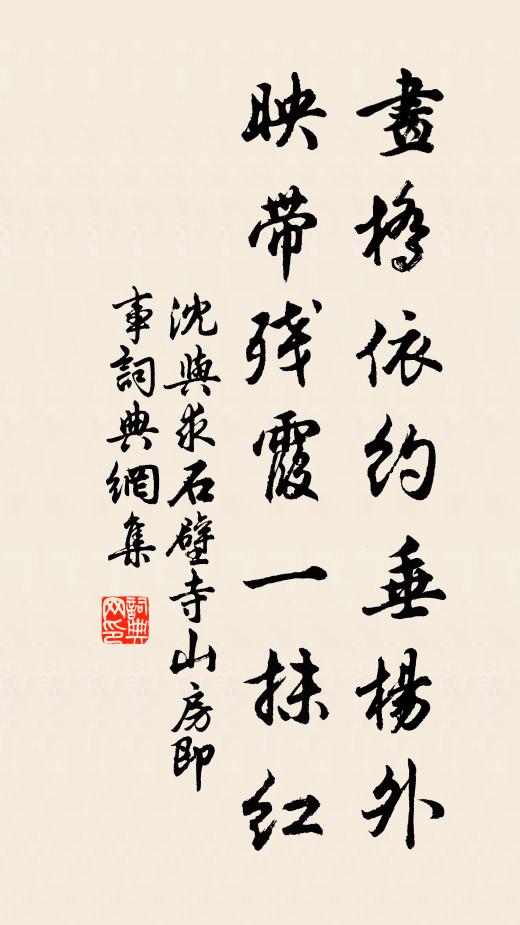 畫橋依約垂楊外
映帶殘霞一抹紅
沈與求石壁寺山房即
事詞典網集
詞典
网印